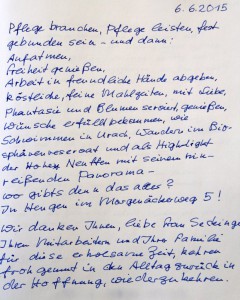 6.6.2015
Pflege brauchen, Pflege leisten, fest
gebunden sein – und dann:
Aufatmen,
Freiheit genießen,
Arbeit in freundliche Hände abgeben,
köstliche, feine Mahlzeiten, mit Liebe,
Phantasie und Blumen serviert, genießen,
Wünsche erfüllt bekommen, wie
Schwimmen in Urach, Wandern im Bio-
sphärenreservat und als Highlight
der Hohe Neuffen mit seinem hin-
reißenden Panorama –
wo gibts denn das alles?
In Hengen im Morgenäckerweg 5!
Wir danken Ihnen, liebe Frau
Ihren Mitarbeitern und Ihrer Familie
für diese erholsame Zeit, kehren
frohgemut in den Alltag zurück in
der Hoffnung, wiederzukehren.